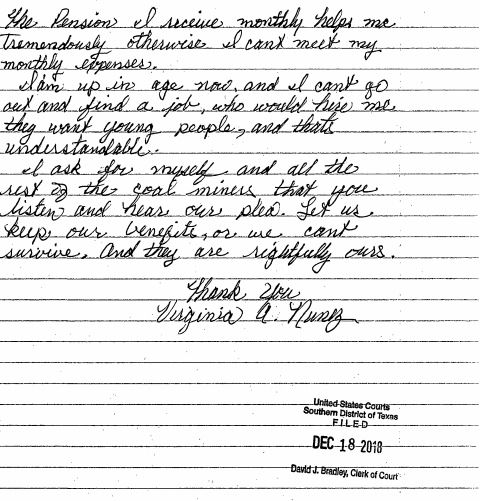 The Pension I receive monthly helps me
tremendously otherwise I cant meet my
monthly expenses.
I am up in age now, and I cant go
out and find a job, who would hire me
they want young people, and thats
understandable.
I ask for myself and all the
rest of the coal miners that you
listen and hear our plea. Let us
keep our benefits, or we cant
survive. And they are rightfully ours.
Thank You
Virginia A. Nunez
United States Courts
Southern District of Texas
FILED
DEC 18 2018
David J. Bradley, Clerk of Court